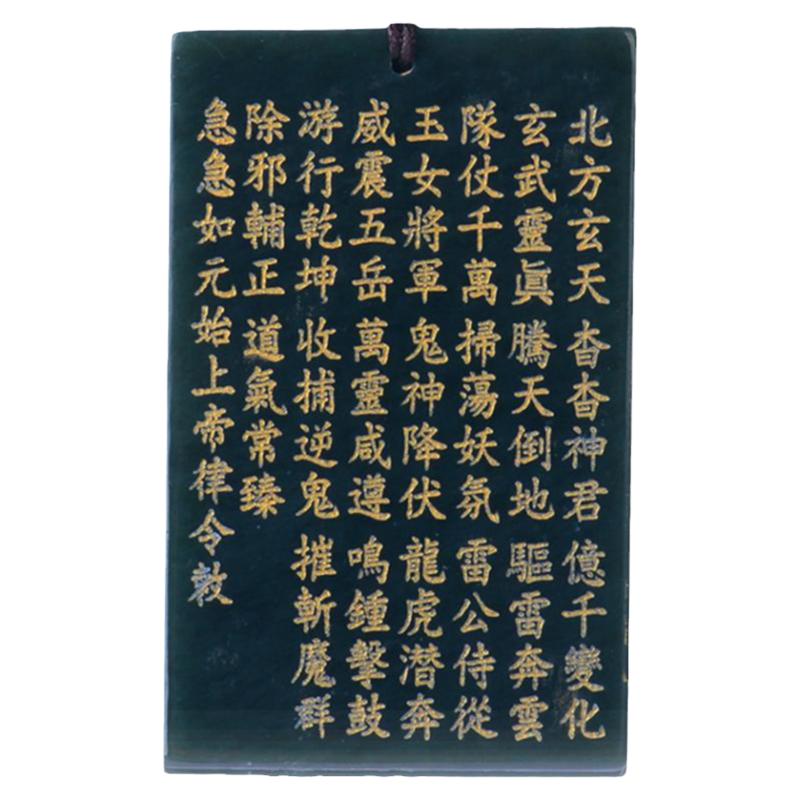 北方玄天 杳杳神君 億千變化
玄武靈眞 騰天倒地 驅雷奔雲
隊仗千萬 掃蕩妖氛 雷公侍從
玉女將軍 鬼神降伏 龍虎潜奔
威震五岳 萬靈咸遵 鳴鍾擊鼓
游行乾坤 收捕逆鬼 摧斬魔群
除邪輔正 道氣常臻
急急如元始上帝律令敕